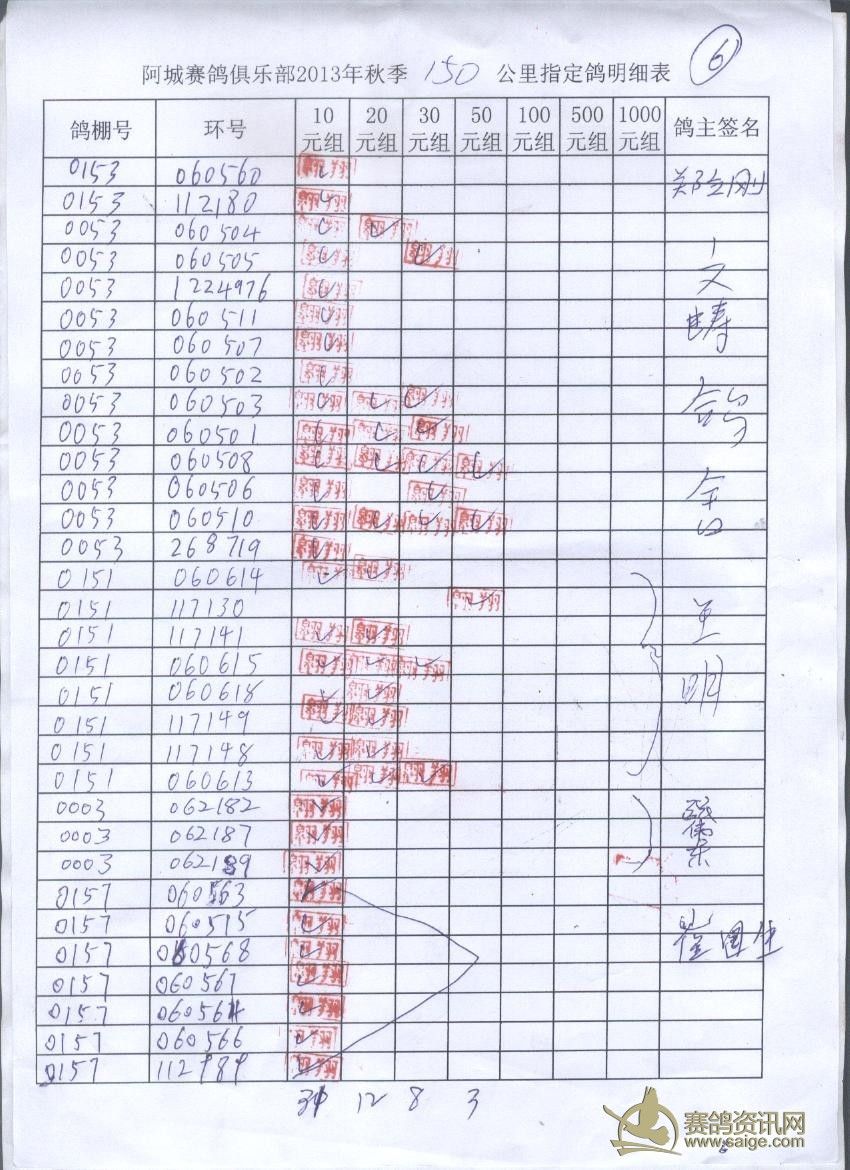 6
阿城赛鸽俱乐部2013年秋季 150 公里指定鸽明细表
鸽棚号 环号 10元组 20元组 30元组 50元组 100元组 500元组 1000元组 鸽主签名
0153 060560 翱翔 郑立刚
0153 112180 翱翔
0053 060504 翱翔 翱翔
0053 060505 翱翔 翱翔
0053 1224976 翱翔
0053 060511 翱翔
0053 060507 翱翔
0053 060502 翱翔
0053 060503 翱翔 翱翔 翱翔 鸽
0053 060501 翱翔 翱翔 翱翔
0053 060508 翱翔 翱翔 翱翔 翱翔
0053 060506 翱翔 翱翔 舍
0053 060510 翱翔 翱翔 翱翔 翱翔
0053 268719 翱翔
0151 060614 翱翔 翱翔
0151 117130 翱翔
0151 117141 翱翔 翱翔
0151 060615 翱翔 翱翔 翱翔 明
0151 060618 翱翔
0151 117149 翱翔 翱翔
0151 117148 翱翔 翱翔
0151 060613 翱翔 翱翔 翱翔
0003 062182 翱翔
0003 062187 翱翔
0003 062189 翱翔
0157 060563 翱翔
0157 060515 翱翔 崔国生
0157 060568 翱翔
0157 060567 翱翔
0157 060564 翱翔
0157 060566 翱翔
0157 112989 翱翔
31 12 8 3
赛鸽资讯网
www.saige.com